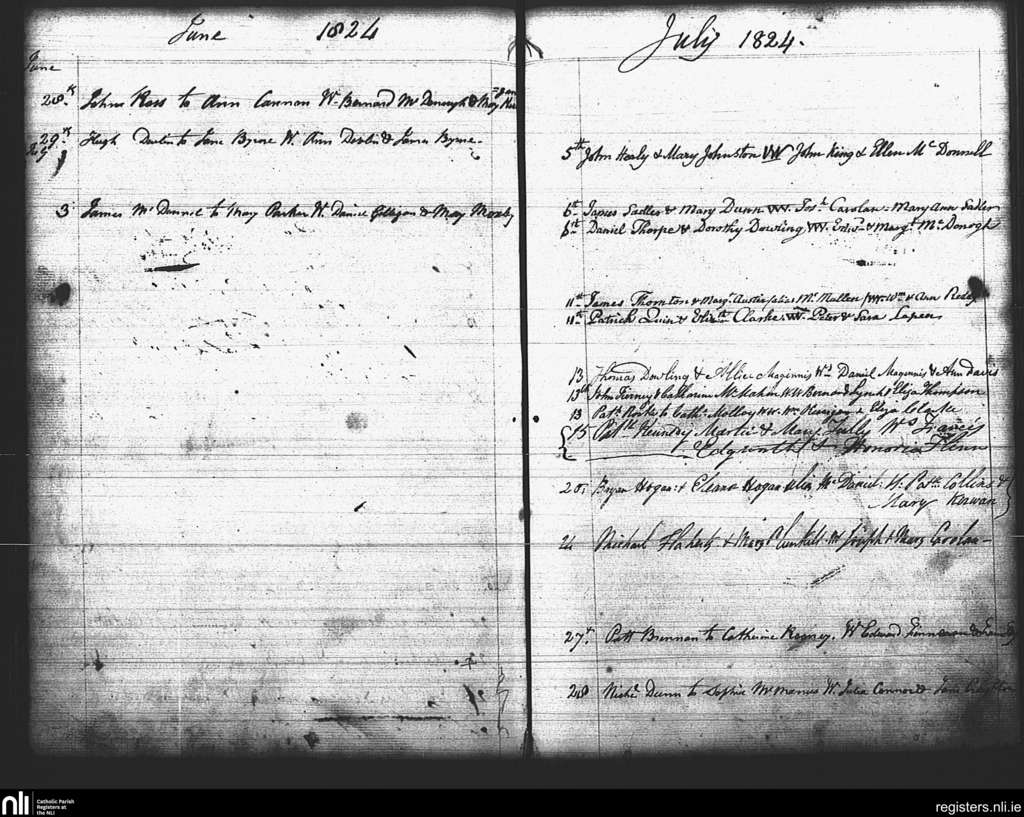 June 1824
June
28th John Ross to Ann Cannon W. Bernard McDonough & Mary
29th Hugh Devlin to Jane Byrne W. Ann Devlin & James Byrne
3 James McDannel to Mary Parker W. Daniel Gilligan & Mary
July 1824.
5th John Healy & Mary Johnston WW John King & Ellen McDonnell
6th James Sadler & Mary Dunn WW. Josh. Carolan - Mary Ann Sadler
8th Daniel Thorpe & Dorothy Dowling WW. Edwd & Margt. McDonogh
11th James Thornton & Margt. Austin alias McMullen WW. Wm & Ann Reddy
11th Patrick Quin & Elizth Clarke. WW Peter & Sara
13 Thomas Dowling & Allice Magennis Ws Daniel Magennis & Ann Davis
13th John Tierney & Catharine McMahon WW Bernard Lynch & Eliza Thompson
13 Patk Rooke to Cathe. Molloy WW. Wm & Eliza Clarke
15 Patk Martin & Mary Tully Ws Francis
Edgworth & Honoria Flinn
20 Bryan Hogan & Hogan alias McDaniel. W. Patk Collins &
Mary Kirwan
24 Michael Flaherty & Mary Plunkett W Joseph & Mary Coolan
27th Patt Brennan to Catherine Rooney. W Edward
28 Michl Dunn to Sophia McManus W. Julia Connor & Jane
nli
Catholic Parish
Registers at
the NLI
registers.nli.ie